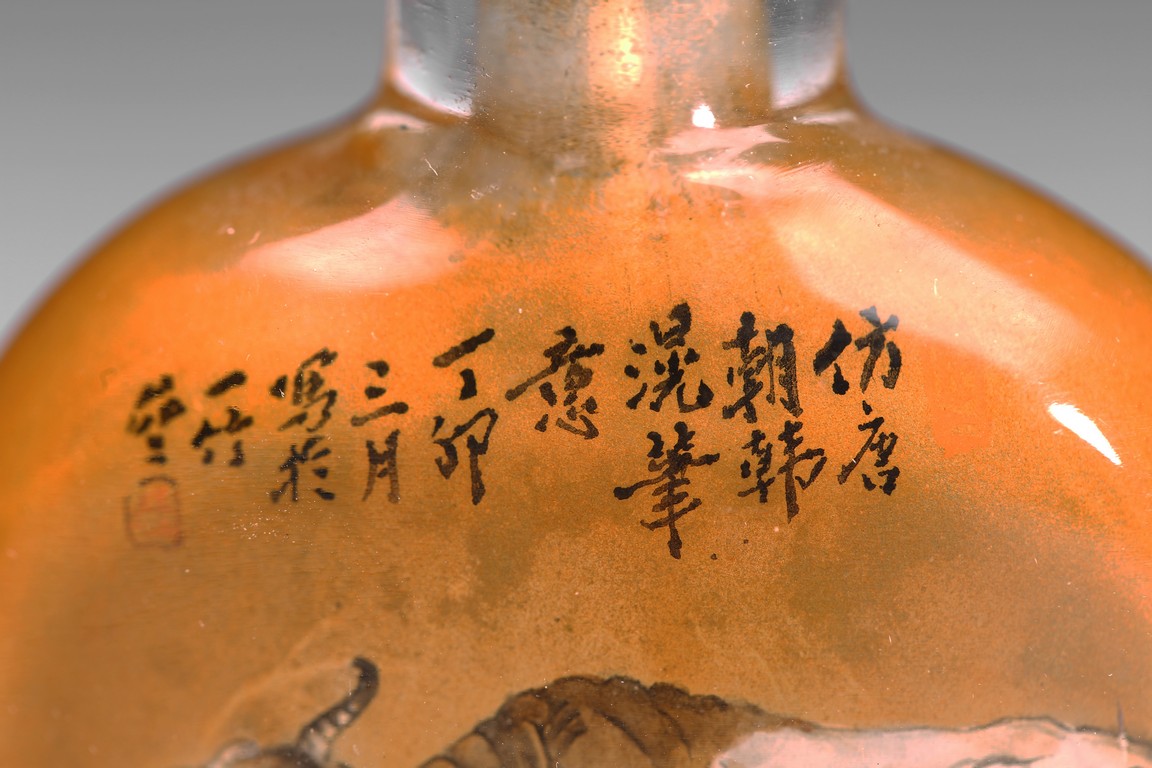 仿唐
朝韩
滉筆
意
丁卯
三月
寫於
一竹
齋